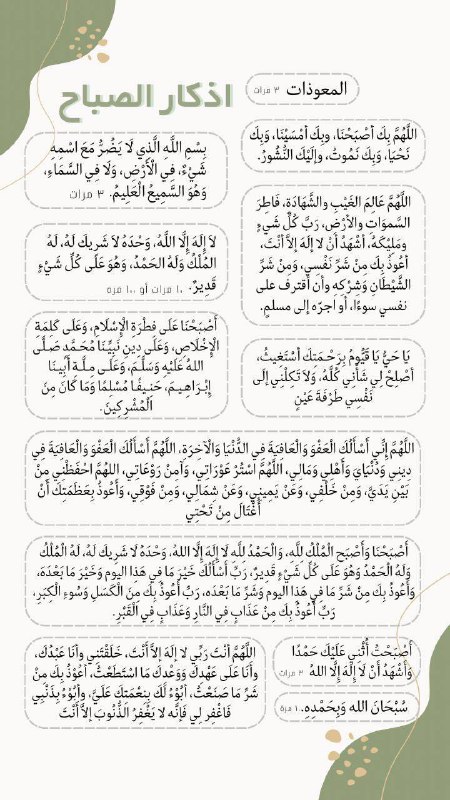 اذكار الصباح
المعوذات ٣ مرات
اللَّهُمَّ بِكَ أَصْبَحْنَا، وبِكَ أَمْسَيْنَا، وَبِكَ
نَحْيَا، وَبِكَ نَمُوتُ، وإلَيْكَ النُّشُورُ.
بِسْمِ اللَّهِ الَّذِي لَا يَضُرُّ مَعَ اسْمِهِ
شَيْءٌ، فِي الْأَرْضِ، وَلَا فِي السَّمَاءِ،
وَهُوَ السَّمِيعُ الْعَلِيمُ. ٣ مرات
اللَّهُمَّ عَالِمَ الغَيْبِ والشَّهَادَةِ، فَاطِرَ
السَّمَوَاتِ والأَرْضِ، رَبَّ كُلِّ شَيْءٍ
ومَلِيْكَهُ، أَشْهَدُ أَنْ لا إلَهَ إلاَّ أَنْتَ،
أَعُوذُ بِكَ مِنْ شَرِّ نَفْسِي، وَمِنْ شَرِّ
الشَّيْطَانِ وَشِرْكِهِ وأن أقترف على
نفسي سوءًا، أو أجرّه إلى مسلمٍ.
لاَ إِلَهَ إِلَّا اللَّهُ، وَحْدَهُ لاَ شَرِيكَ لَهُ، لَهُ
المُلْكُ وَلَهُ الحَمْدُ، وَهُوَ عَلَى كُلِّ شَيْءٍ
قَدِيرٌ. ١٠ مرات أو ١٠٠ مره
أَصْبَحْنَا عَلَى فِطْرَةِ الْإِسْلَامِ، وَعَلَى كَلِمَةِ
الْإِخْلَاصِ، وَعَلَى دِينِ نَبِيِّنَا مُحَمَّدٍ صَلَّى
اللهُ عَلَيْهِ وَسَلَّمَ، وَعَلَى مِلَّةِ أَبِينَا
إِبْرَاهِيمَ، حَنِيفًا مُسْلِمًا وَمَا كَانَ مِنَ
الْمُشْرِكِينَ.
يَا حَيُّ يَا قَيُّومُ بِرَحْمَتِكَ أَسْتَغِيثُ،
أَصْلِحْ لِي شَأْنِي كُلَّهُ، وَلاَ تَكِلْنِي إلَى
نَفْسِي طَرْفَةَ عَيْنٍ
اللَّهُمَّ إِنِّي أَسْأَلُكَ العَفْوَ وَالْعَافِيَةَ فِي الدُّنْيَا وَالْآخِرَةِ، اللَّهُمَّ أَسْأَلُكَ الْعَفْوَ وَالْعَافِيَةَ فِي
دِينِي وَدُنْيَايَ وَأَهْلِي وَمَالِي، اللَّهُمَّ اسْتُرْ عَوْرَاتِي، وَآمِنْ رَوْعَاتِي، اللهُمَّ احْفَظْنِي مِنْ
بَيْنِ يَدَيَّ، وَمِنْ خَلْفِي، وَعَنْ يَمِينِي، وَعَنْ شِمَالِي، وَمِنْ فَوْقِي، وَأَعُوذُ بِعَظَمَتِكَ أَنْ
أُغْتَالَ مِنْ تَحْتِي
أَصْبَحْنَا وَأَصْبَحَ الْمُلْكُ لِلَّهِ، وَالْحَمْدُ لِلَّهِ لَا إِلَهَ إِلَّا اللهُ، وَحْدَهُ لَا شَرِيكَ لَهُ، لَهُ الْمُلْكُ
وَلَهُ الْحَمْدُ وَهُوَ عَلَى كُلِّ شَيْءٍ قَدِيرٌ، رَبِّ أَسْأَلُكَ خَيْرَ مَا فِي هَذِا اليوم وَخَيْرَ مَا بَعْدَهَ،
وَأَعُوذُ بِكَ مِنْ شَرِّ مَا فِي هَذِا اليوم وَشَرِّ مَا بَعْدَه، رَبِّ أَعُوذُ بِكَ مِنَ الْكَسَلِ وَسُوءِ الْكِبَرِ،
رَبِّ أَعُوذُ بِكَ مِنْ عَذَابٍ فِي النَّارِ وَعَذَابٍ فِي الْقَبْرِ.
أَصْبَحْتُ أُثْنِي عَلَيْكَ حَمْدًا
وَأَشْهَدُ أَنْ لَا إِلَهَ إِلَّا اللهُ ٣ مرات
سُبْحَانَ اللهِ وَبِحَمْدِهِ. ١٠٠ مرة
اللَّهُمَّ أَنْتَ رَبِّي لا إلَهَ إلَّا أَنْتَ، خَلَقْتَنِي وأنا عَبْدُكَ،
وأنَا عَلَى عَهْدِكَ وَوَعْدِكَ مَا اسْتَطَعْتُ، أعُوْذُ بِكَ مِنْ
شَرِّ مَا صَنَعْتُ، أبُوْءُ لَكَ بِنِعْمَتِكَ عَلَيَّ، وأبُوْءُ بِذَنْبِي
فَاغْفِر لِي فَإنَّه لا يَغْفِرُ الذُّنُوبَ إلَّا أَنْتَ